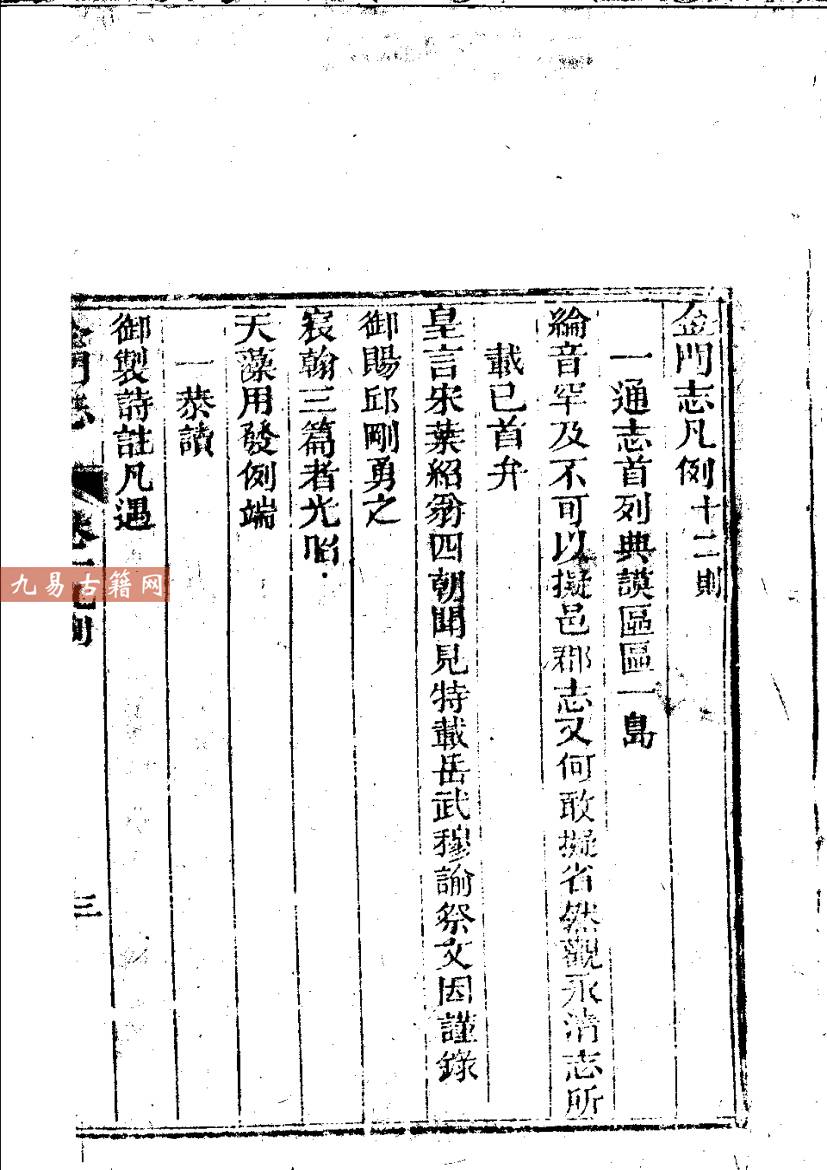 金門志凡例十二則
一通志首列典謨區區一島
綸音罕及不可以擬邑郡志又何敢擬省然觀永清志所
載已首弁
皇言宋葉紹翁四朝聞見特載岳武穆諭祭文因謹錄
御賜邱剛勇之
宸翰三篇者光昭
天藻用發例端
一恭讀
御製詩註凡遇
金門志
三
九易古籍网